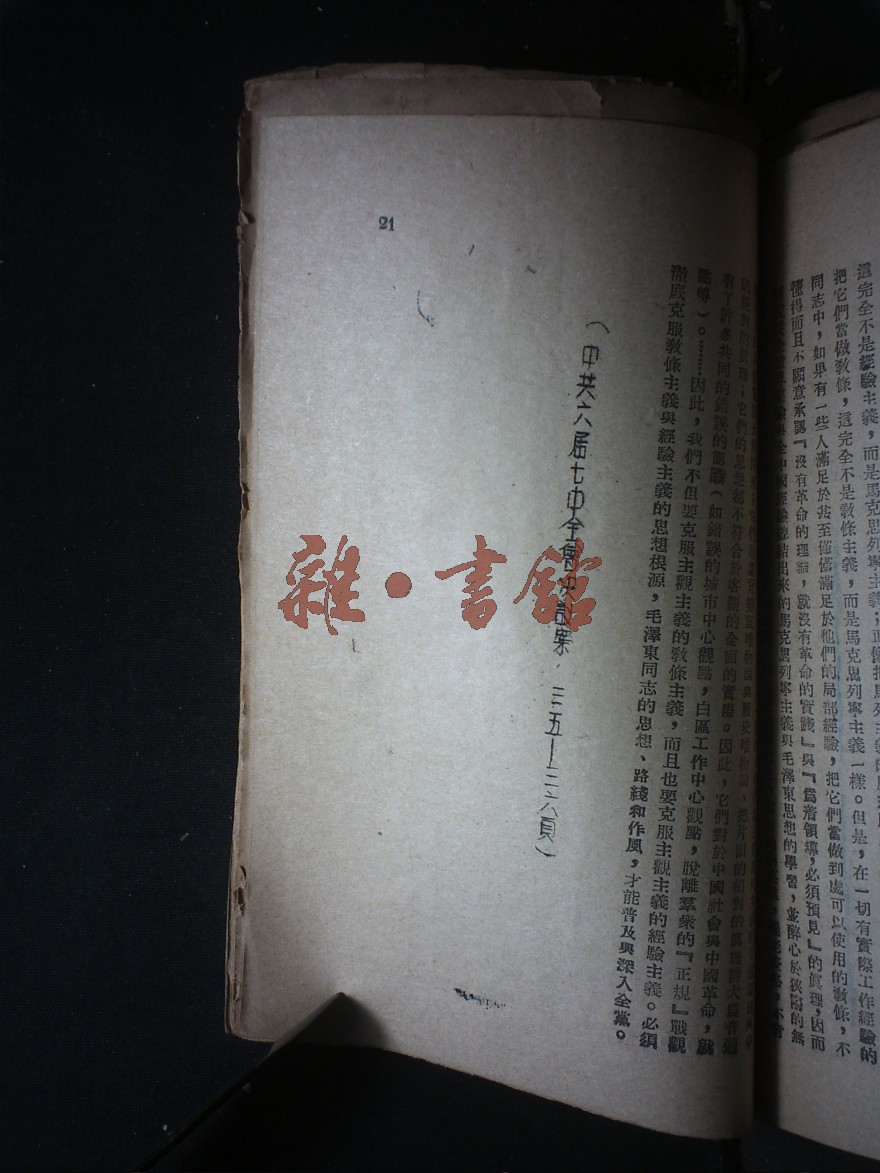 這完全不是經驗主義,而是馬克思列寧主義
把它們當做敎條,這完全不是敎條主義,而是馬克思列寧主義一樣。但是,在一切有實際工作經驗的
同志中,如果有一些人滿足於甚至僅僅滿足於他們的局部經驗,把它們當做到處可以使用的敎條,不
懂得而且不願意承認『沒有革命的理論,就沒有革命的實踐』與『爲着領導,必須預見』的眞理,因而
結出來的馬克思列寧主義與毛澤東思想的學習,並醉心於狹隘的無
的絕對的眞理;它們的思想都不符合於客觀的全面的實際。因此,它們對於中國社會與中國革命,就
有了許多共同的錯誤的認識(如錯誤的城市中心觀點,白區工作中心觀點,脫離羣衆的『正規』戰觀
點等)。………因此,我們不但要克服主觀主義的敎條主義,而且也要克服主觀主義的經驗主義。必須
澈底克服敎條主義與經驗主義的思想根源,毛澤東同志的思想、路綫和作風,才能普及與深入全黨。
(中共六屆七中全會決議案 三五—三六頁)
21
雜·書館